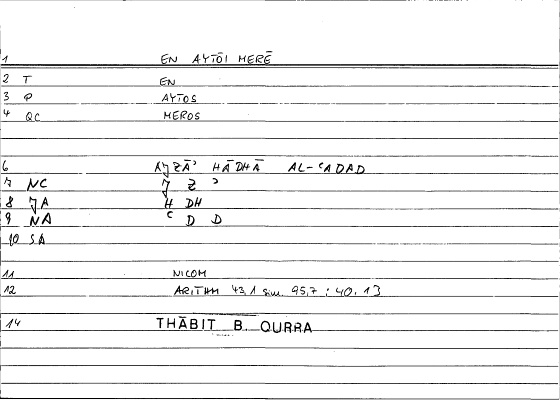 1 EN AYTŌI MERĒ
2 T EN
3 P AYTOS
4 QC MEROS
6 AǦZĀʾ HĀDHĀ AL-ʿADAD
7 NC Ǧ Z ʾ
8 ǦA H DH
9 NA ʿ D D
10 SA
11 NICOM
12 ARITHM 43,1 sim. 95,7 : 40.13
14 THĀBIT B. QURRA